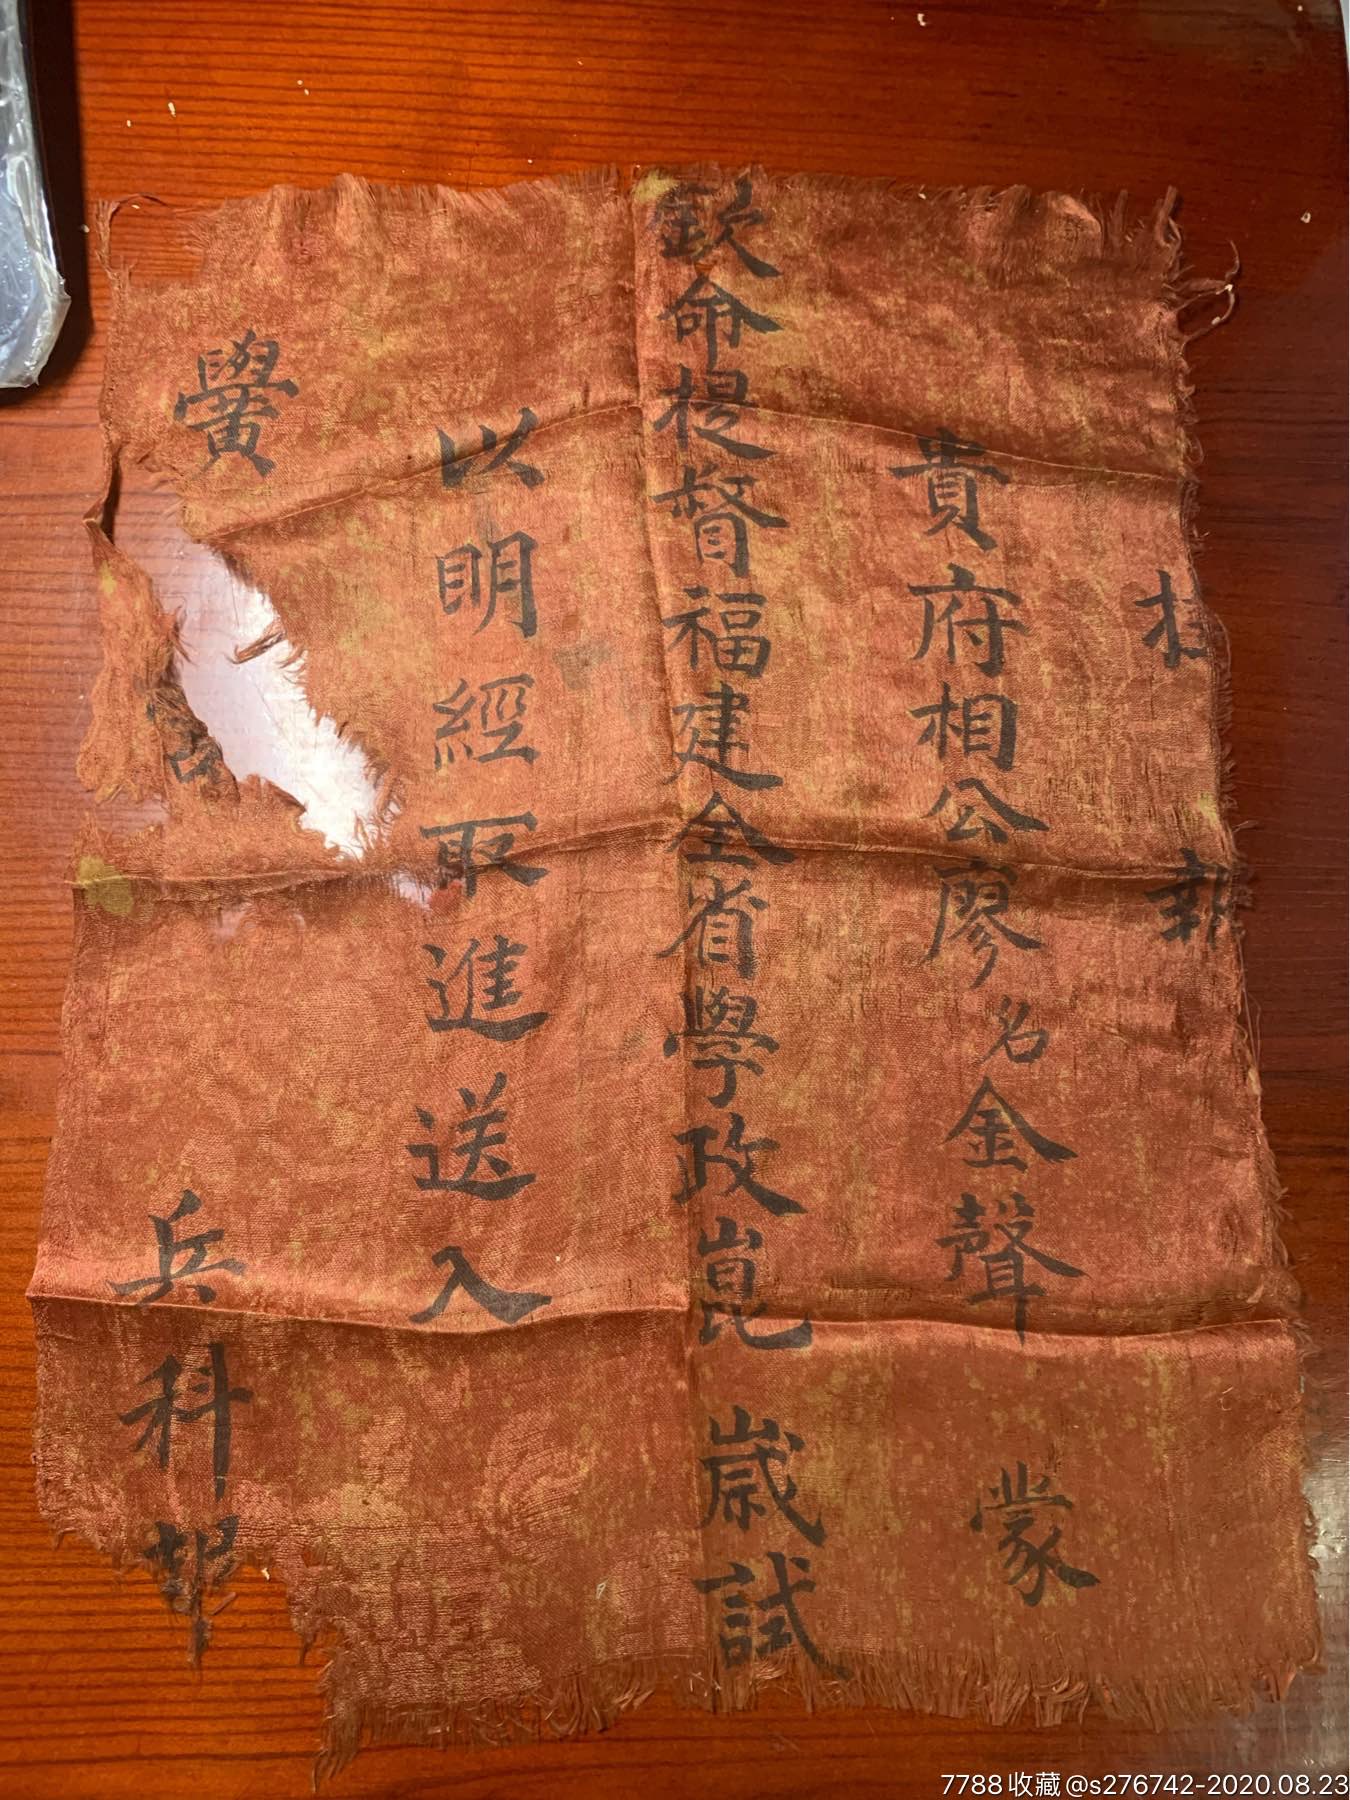 報
貴府相公廖名金聲 蒙
欽命提督福建全省學政崑 歲試
以明經取進送入
黌
兵科
7788收藏@s276742-2020.08.23